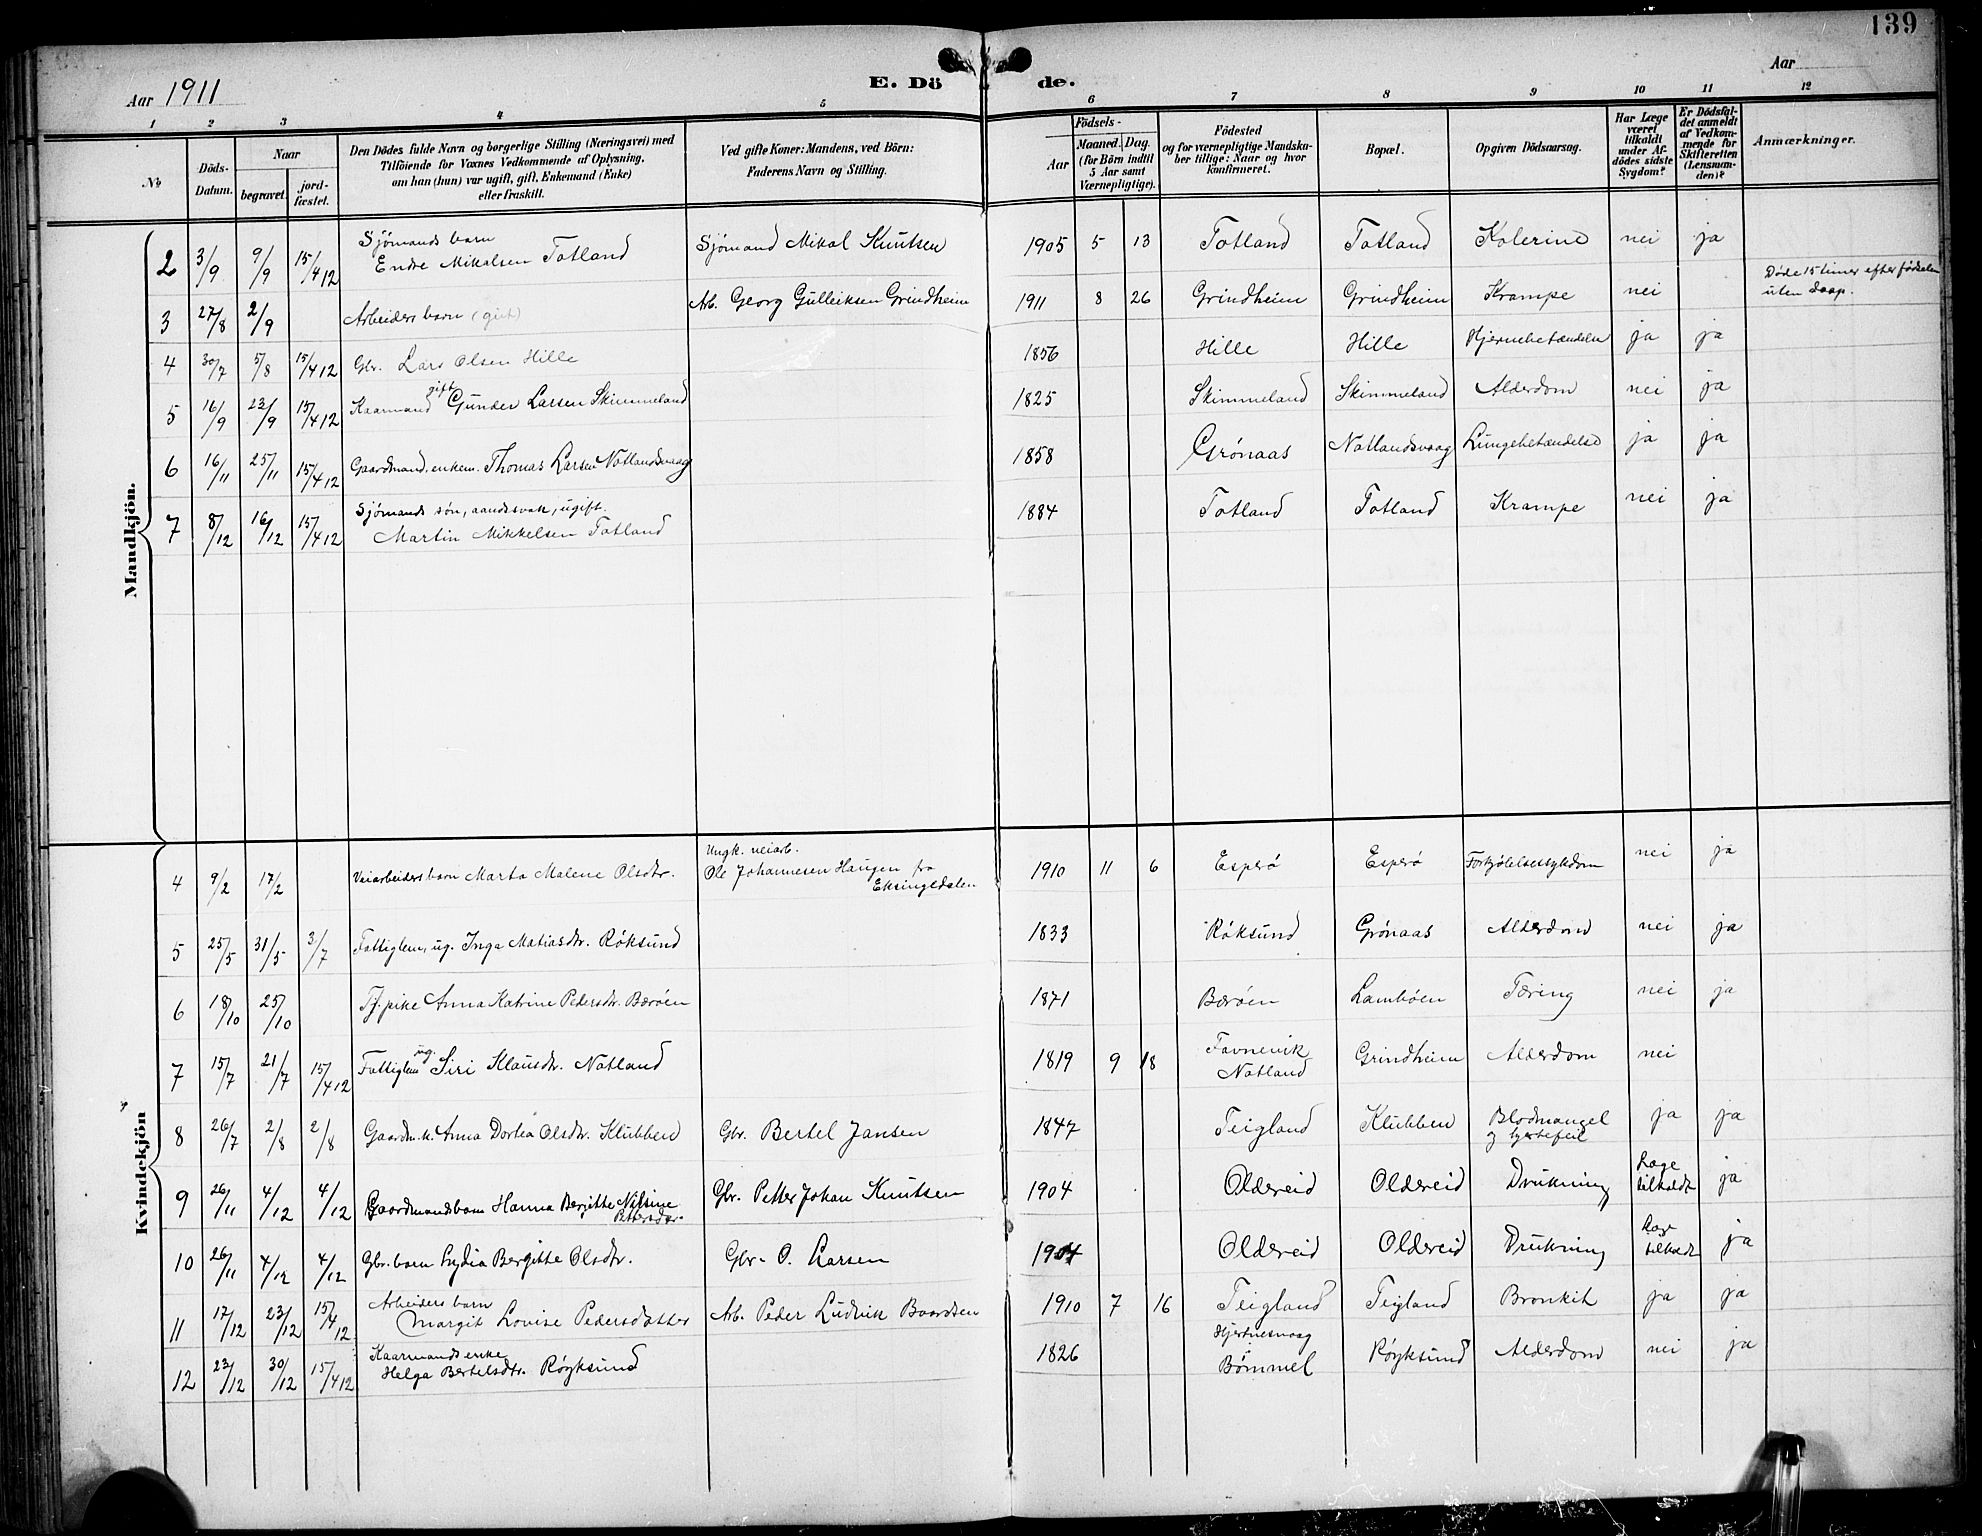 139
Aar 1911
E. Dö de.
Aar
1 2 3 4 5 6 7 8 9 10 11 12
No
Döds-Datum.
Naar
begravet.
jord-fæstet.
Den Dödes fulde Navn og borgerlige Stilling (Næringsvei) med
Tilföiende for Voxnes Vedkommende af Oplysning,
om han (hun) var ugift, gift, Enkemand (Enke)
eller fraskilt.
Ved gifte Koner: Mandens, ved Börn:
Faderens Navn og Stilling.
Födsels-
Aar
Maaned. Dag.
(for Börn indtil
5 Aar samt
Værnepligtige).
Födested
og for værnepligtige Mandska-
ber tillige: Naar og hvor
konfirmeret.
Bopæl.
Opgiven Dödsaarsag.
Har Læge
været
tilkaldt
under Af-
dödes sidste
Sygdom?
Er Dödsfal-
det anmeldt
af Vedkom-
mende for
Skifteretten
(Lensman-
den)?
Anmærkninger.
Mandkjön.
2 3/9 9/9 15/4 12 Sjømands barn Endre Mikalsen Totland Sjømand Mikal Knutsen 1905 5 13 Totland Totland Kolerine nei ja
3 27/8 2/9 Arbeiders barn (gut) Arb. Georg Gulleiksen Grindheim 1911 8 26 Grindheim Grindheim Krampe nei Døde 15 timer efter fødselen uten daap.
4 30/7 5/8 15/4 12 Gbr. Lars Olsen Hille 1856 Hille Hille Hjernebetændelse ja ja
5 16/9 23/9 15/4 12 Kaarmand gift Gunder Larsen Skimmeland 1825 Skimmeland Skimmeland Alderdom nei ja
6 16/11 25/11 15/4 12 Gaardmand, enkem. Thomas Larsen Notlandsvaag 1858 Grønaas Notlandsvaag Lungebetændelse ja ja
7 8/12 16/12 15/4 12 Sjømands søn, aandssvak, ugift. Martin Mikkelsen Totland 1884 Totland Totland Krampe nei ja
Kvindekjön
4 9/2 17/2 Veiarbeiders barn Marta Malene Olsdtr. Ungk. veiarb. Ole Johannesen Haugen fra Eksingedalen 1910 11 6 Esperø Esperø Forkjølelsessykdom nei ja
5 25/5 31/5 3/7 Fattiglem, ug. Inga Matiasdtr. Røksund 1833 Røksund Grønaas Alderdom nei ja
6 18/10 25/10 Tj. pike Anna Katrine Pedersdtr. Børøen 1871 Børøen Lambøen Tæring nei ja
7 15/7 21/7 15/4 12 Fattiglem ug. Siri Klausdtr. Notland 1819 9 18 Favnevik Notland Grindheim Alderdom nei
8 26/7 2/8 2/8 Gaardm.k. Anna Dortea Olsdtr. Klubben Gbr. Bertel Jansen 1847 Teigland Klubben Blodmangel og hjertefeil ja ja
9 26/11 4/12 4/12 Gaardmandsbarn Hanna Bergitte Nilsine Pettersdtr. Gbr. Petter Johan Knutsen 1904 Oldereid Oldereid Drukning Læge tilkaldt ja
10 26/11 4/12 4/12 Gbr. barn Lydia Bergitte Olsdtr. Gbr. O. Larsen 1904 Oldereid Oldereid Drukning Læge tilkaldt ja
11 17/12 23/12 15/4 12 Arbeiders barn Margit Lovise Pedersdatter Arb. Peder Ludvik Baardsen 1910 7 16 Teigland Teigland Bronkit ja ja
12 23/12 30/12 15/4 12 Kaarmands enke Helga Bertelsdtr. Røyksund 1826 Hjertnesvaag Bømmel Røyksund Alderdom nei ja